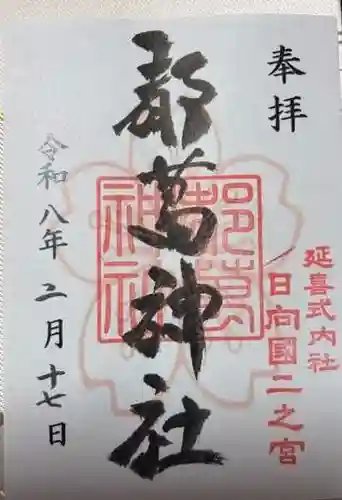 奉拝
延喜式内社
日向國二之宮
都萬神社
都萬
神社
令和八年二月十七日